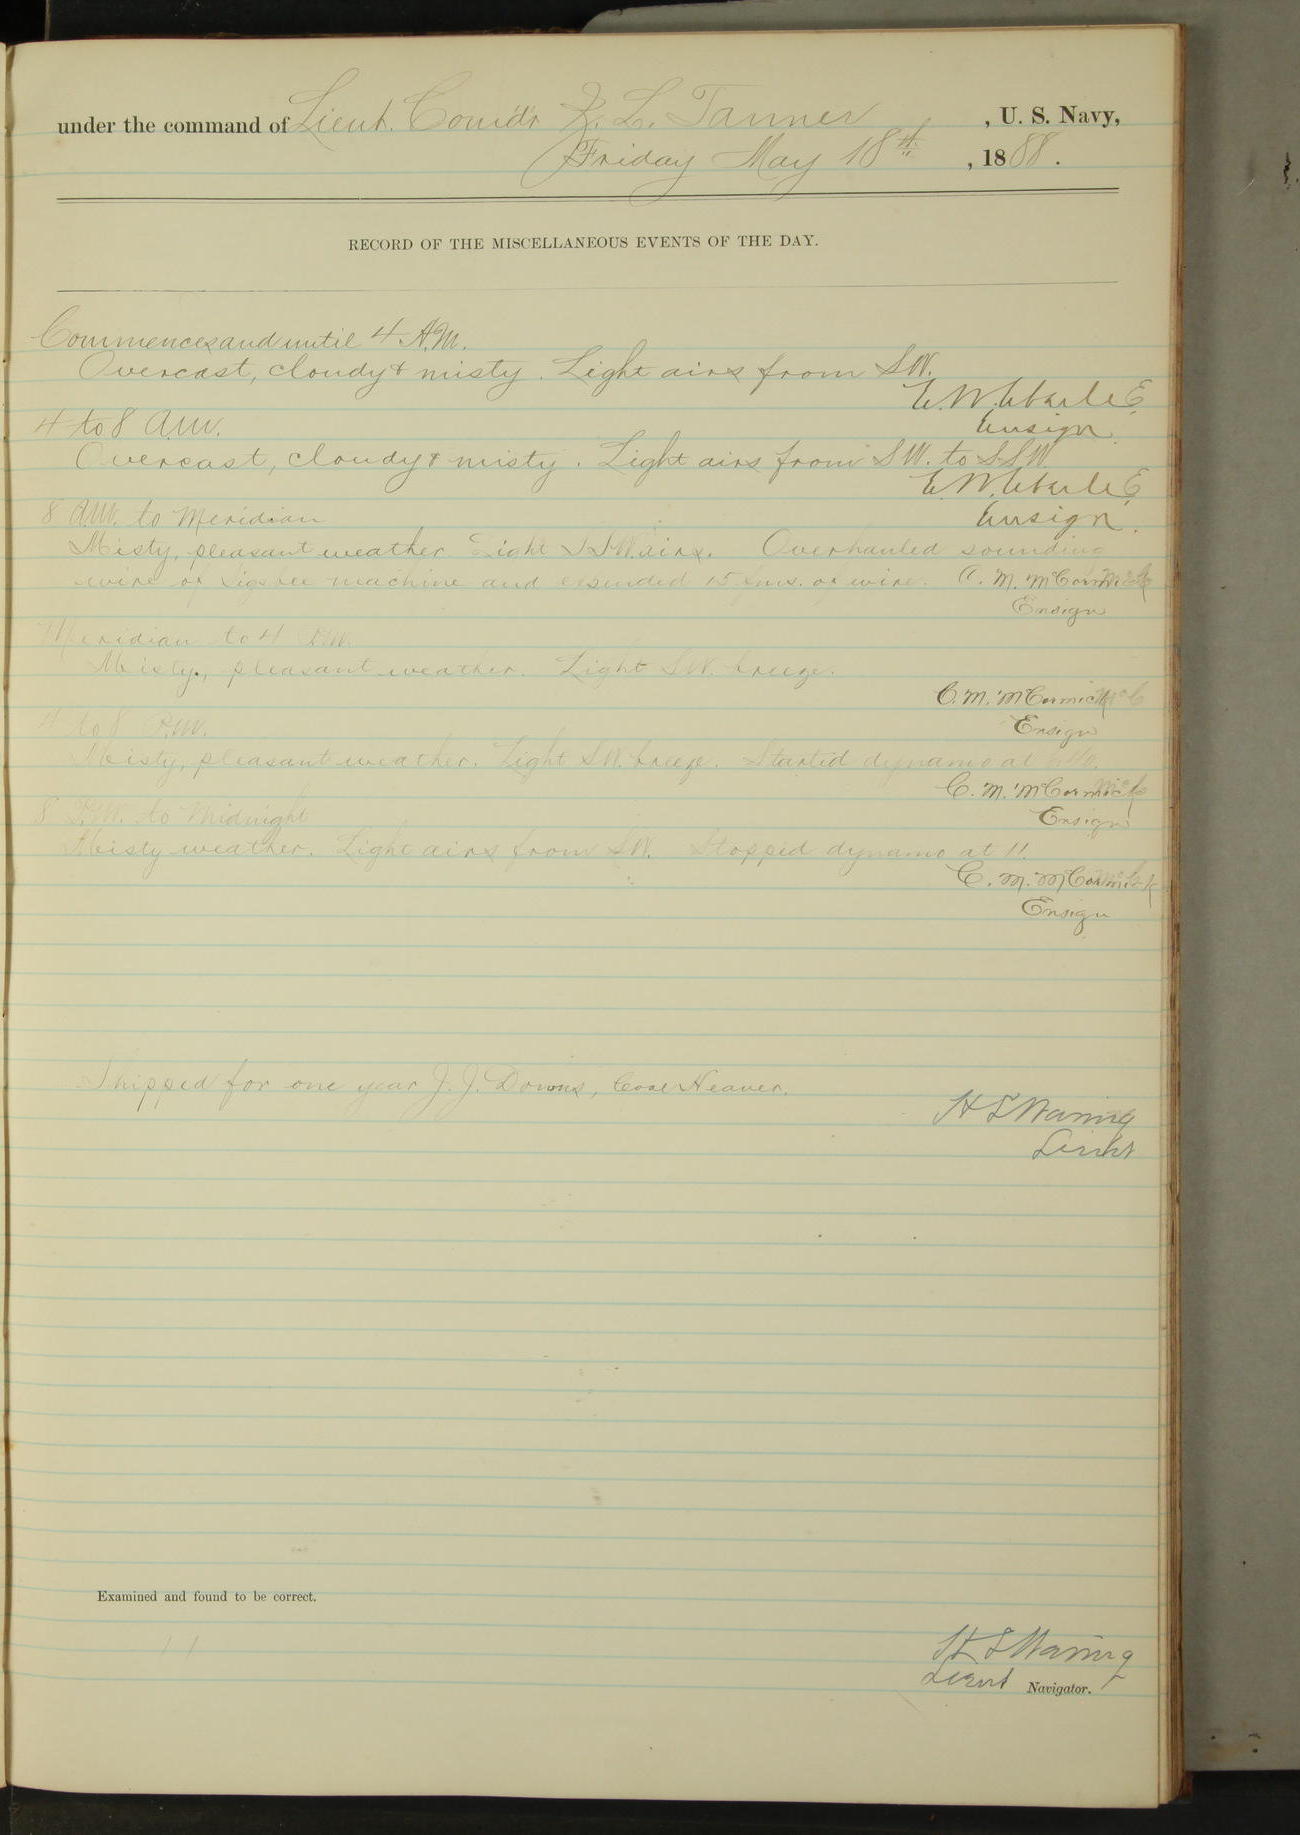 under the command of Lieut. Comdr Z. L. Tanner, U. S. Navy,
Friday May 18th, 1888.
RECORD OF THE MISCELLANEOUS EVENTS OF THE DAY.
Commences and until 4 A.M.
Overcast, cloudy & misty. Light airs from SW.
E. W. Eberle
Ensign
4 to 8 A.M.
Overcast, cloudy & misty. Light airs from SW. to SSW
E. W. Eberle
Ensign.
8 A.M. to Meridian
Misty, pleasant weather. Light SSW. airs. Overhauled sounding
wire of Sigsbee machine and expended 15 fms. of wire. C. M. McCormick
Ensign
Meridian to 4 P.M.
Misty, pleasant weather. Light SW. breeze.
C. M. McCormick
Ensign
4 to 8 P.M.
Misty, pleasant weather. Light SW. breeze. Started dynamo at
C. M. McCormick
Ensign
8 P.M. to Midnight
Misty weather. Light airs from SW. Stopped dynamo at 11.
C. M. McCormick
Ensign
Shipped for one year J. J. Downs, Coal Heaver.
H S Waring
Lieut
Examined and found to be correct.
H S Waring
Lieut Navigator.